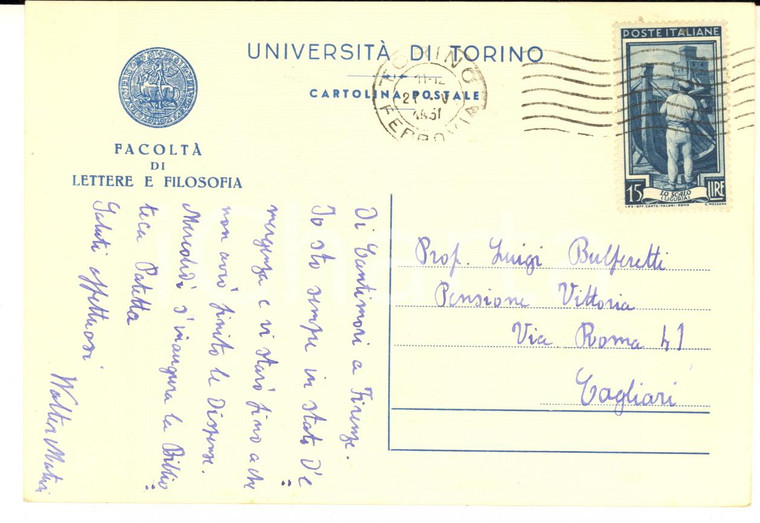 UNIVERSITÀ DI TORINO
CARTOLINA POSTALE
FACOLTÀ
DI
LETTERE E FILOSOFIA
TORINO
FERROVIA
11-12
21 · V
1951
POSTE ITALIANE
15 LIRE
LO SCALO
(LIGURIA)
Prof. Luigi Bulferetti
Pensione Vittoria
Via Roma 41
Cagliari
Di Cantimori a Firenze.
Io sto sempre in stato d'e
mergenza e vi starò fino a che
non avrò finito le Dispense.
Mercoledì s'inaugura la Biblio
teca Patetta
Saluti affettuosi
Walter Maturi